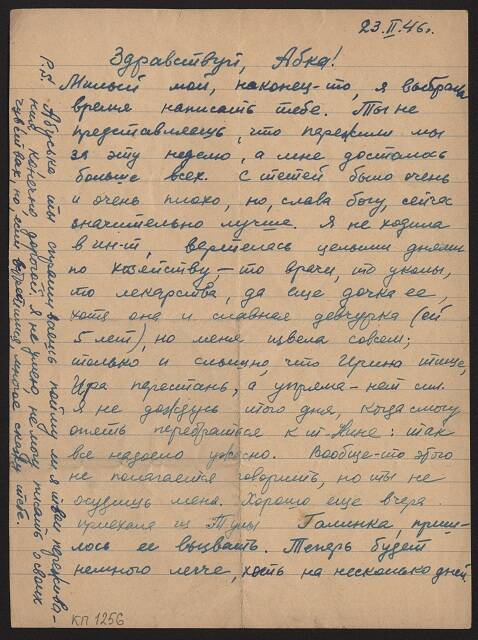 23.II.46г.
Здравствуй, Абка!
Милый мой, наконец-то, я выбрала
время написать тебе. Ты не
представляешь, что пережили мы
за эту неделю, а мне досталось
больше всех. С тётей было очень
и очень плохо, но, слава богу сейчас
значительно лучше. Я не ходила
в ин-т, вертелась целыми днями
по хозяйству – то врачи, то уколы,
то лекарства, да еще дочка ее,
хотя она и славная девчурка (ей
5 лет), но меня извела совсем;
только и слышно, что Ирина тише,
Ира перестань, а упряма – нет сил.
Я не дождусь того дня, когда смогу
опять перебраться к т. Нине: так
все надоело ужасно. Вообще-то этого
не полагается говорить, но ты не
осудишь меня. Хорошо еще вчера
приехала из Тулы Галинка, приш-
лось ее вызвать. Теперь будет
немного легче, хоть на несколько дней.
P.S. Абуська ты спрашиваешь пойму ли я твои пережива-
ния, конечно, дорогой. Я не умею, не могу писать о своих
чувствах, но, если встретимся многое скажу тебе.
КП 1256